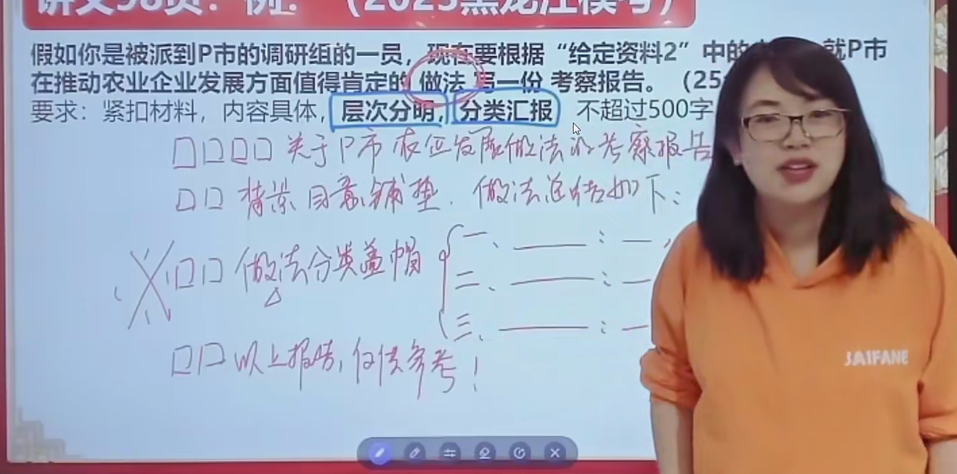 讲义98页：例：（2025黑龙江模考）
假如你是被派到P市的调研组的一员，现在要根据“给定资料2”中的 就P市
在推动农业企业发展方面值得肯定的 做法 写一份 考察报告。（25
要求：紧扣材料，内容具体，层次分明，分类汇报 不超过500字
口口口口关于P市农企发展做法的考察报告
口口 背景目的铺垫．做法总结如下：
口口 做法分类盖帽 { 一、——：—，
二、——：—
三、——：—
口口以上报告，仅供参考！
JAIFANE